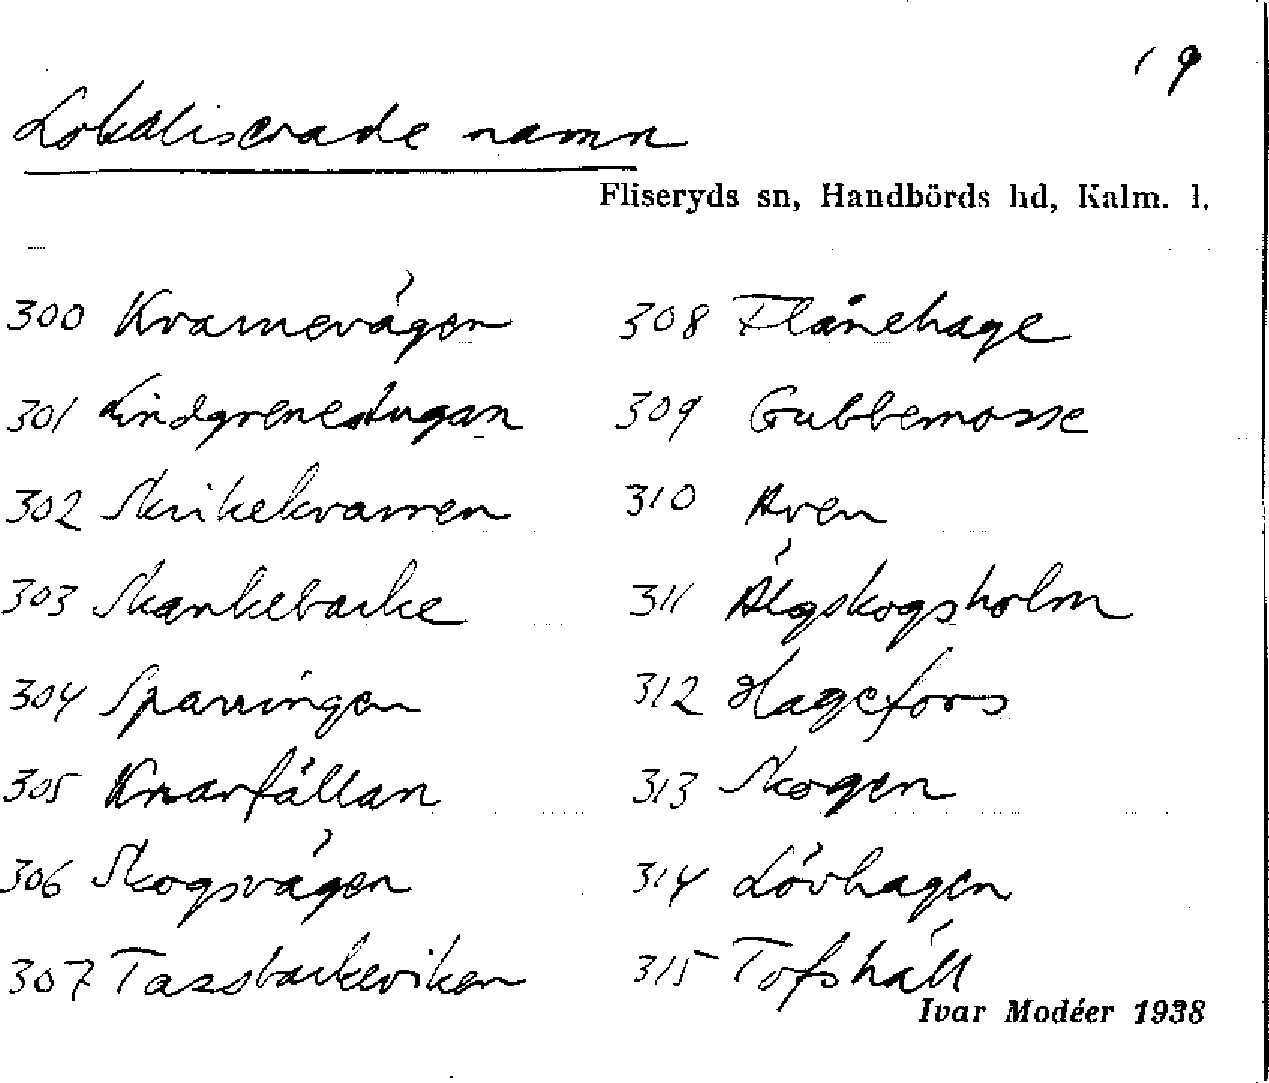 19
Lokaliserade namn
Fliseryds sn, Handbörds hd, Kalm. l.
300 Kvarnevägen
301 Lindgrenestugan
302 Skrikekvarnen
303 Skankebacke
304 Sparringen
305 Knarrfällan
306 Skogsvägen
307 Tassbackeviken
308 Flånehage
309 Gubbemosse
310 Aven
311 Älgskogsholm
312 Hagefors
313 Skogen
314 Lövhagen
315 Tofshäll
Ivar Modéer 1938